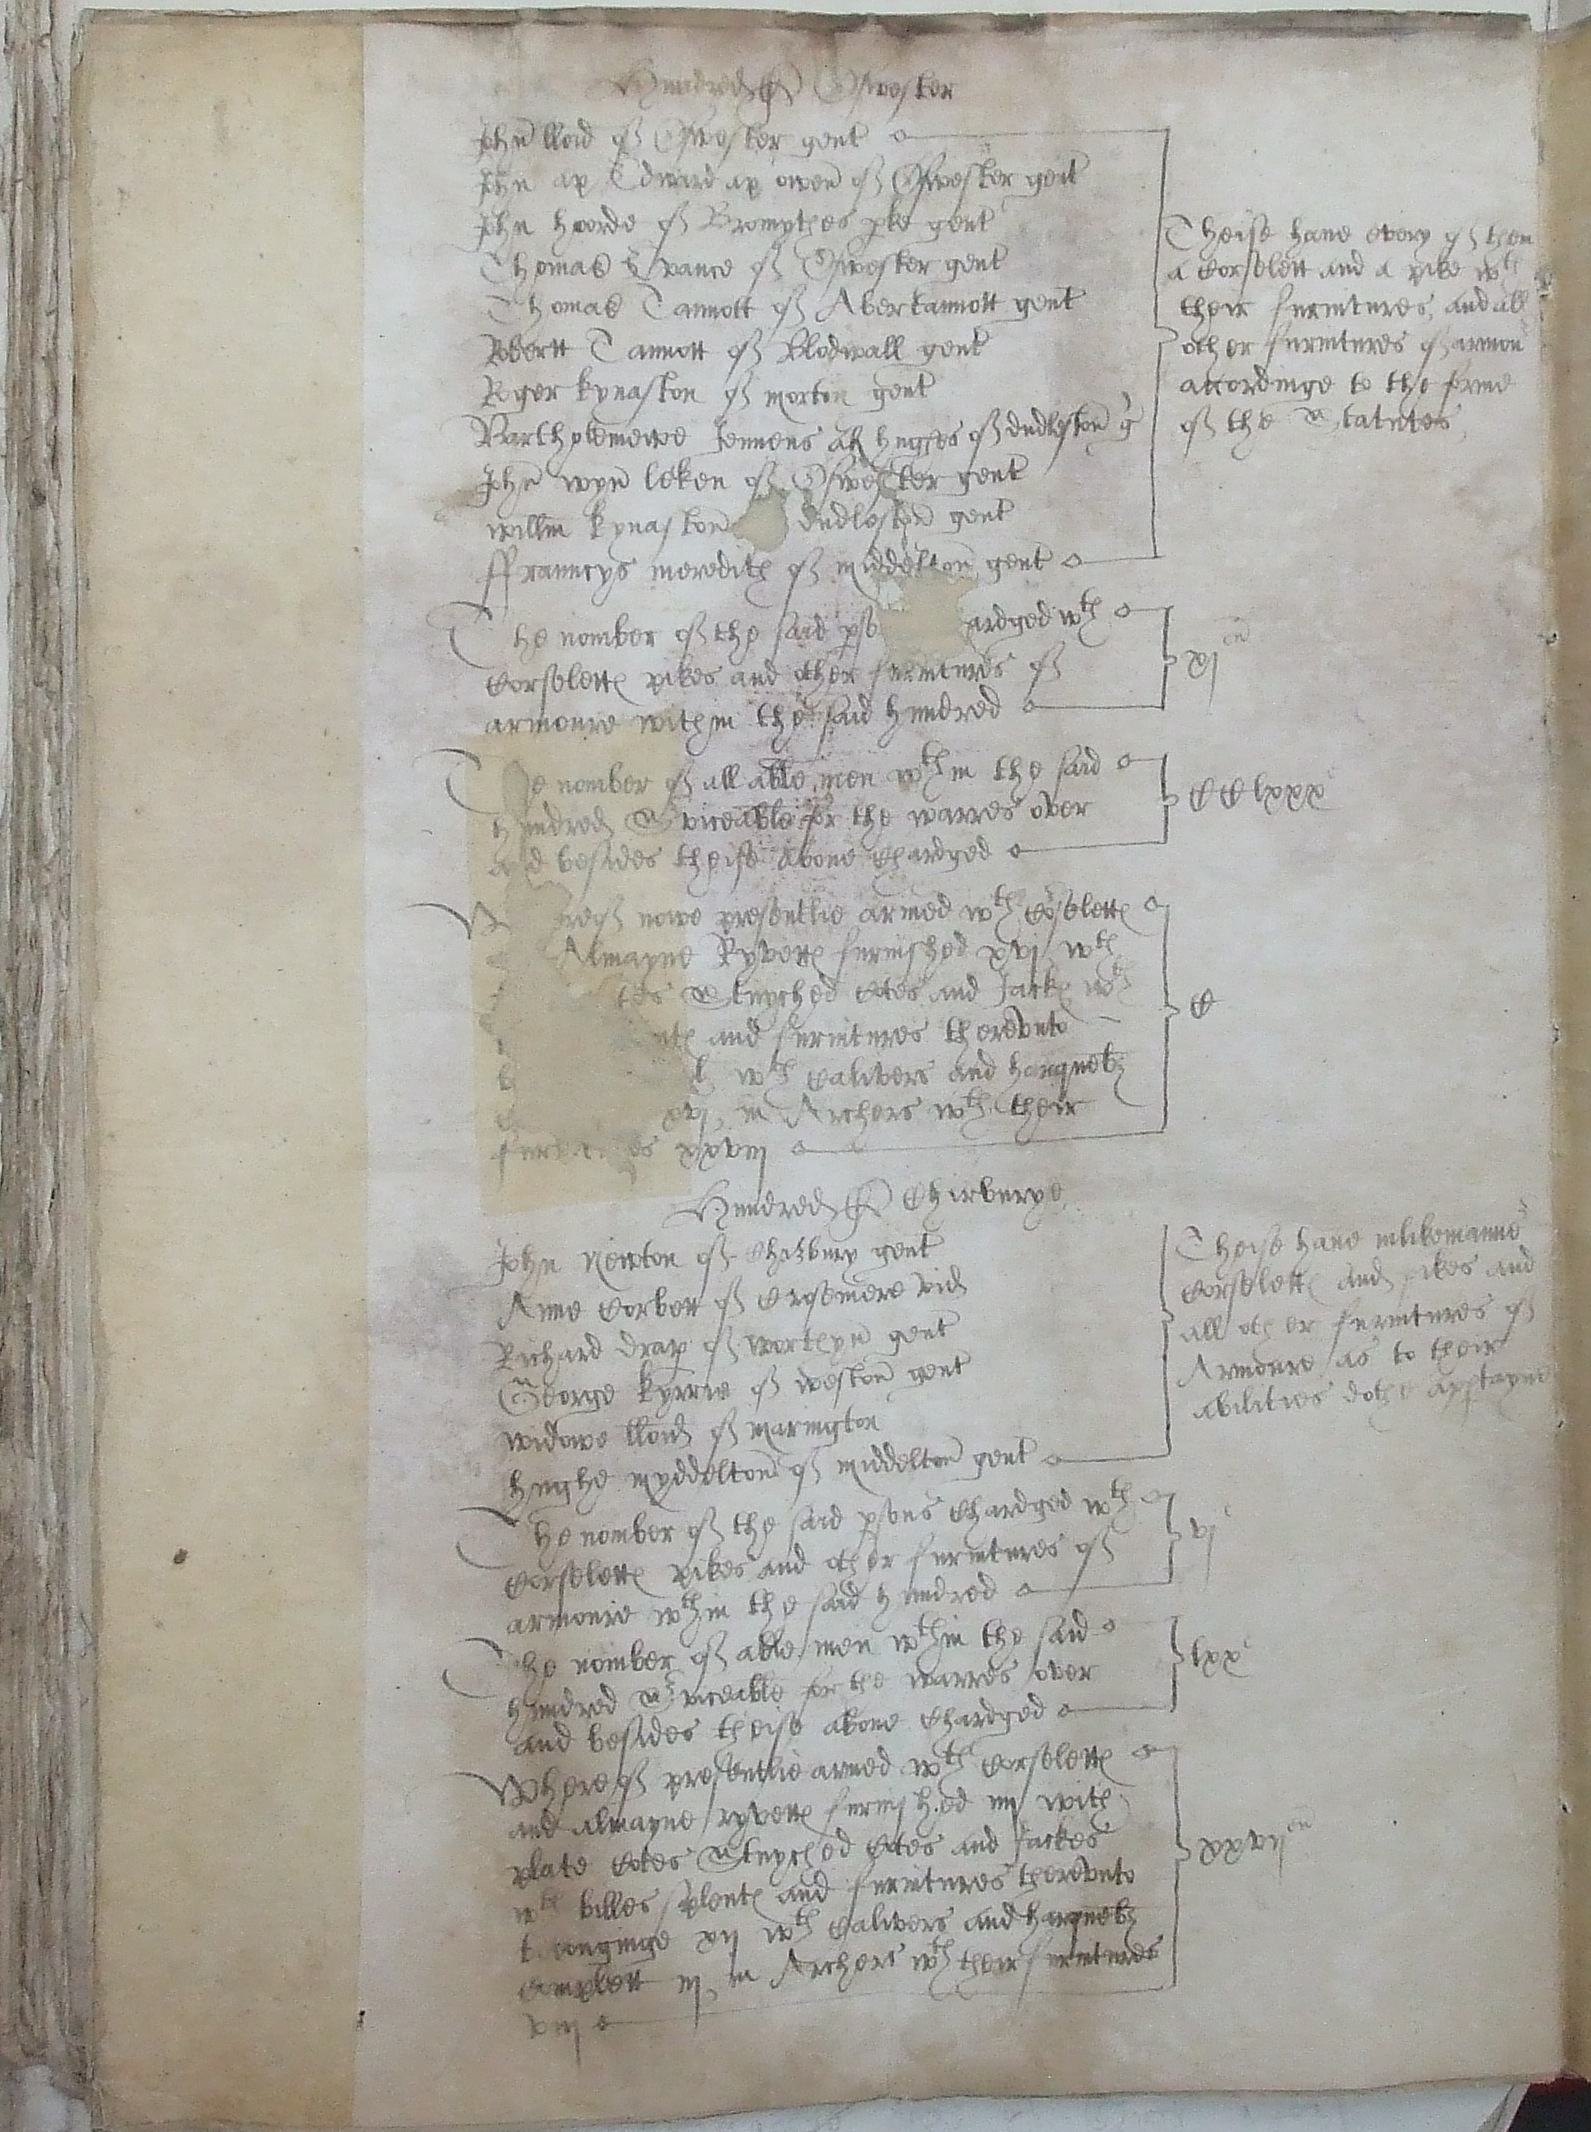 Hundred de Oswester
John lloid of Oswester gent
John ap Edward ap owen of Oswester gent
John hoorde of Bromythes pke gent
Thomas Evance of Oswester gent
Thomas Tannott of Abertannott gent
Robertt Tannott of Blodwall gent
Roger kynaston of morton gent
Barthylemewe Jennens als hugges of dudleston g
John wyn leken of Oswester gent
willm kynaston dudleston gent
ffranncys meredith of middelton gent
Theise have every of them
a Corselett and a pike wth
their furnitures, and all
other furnitures of armour
accordinge to the forme
of the Statutes
The nomber of the said pso ardged wth
Corselette pikes and other furnitures of
armoure within the said hundred
xj en
e nomber of all able men wthin the said
hundred Sviceable for the warres over
and besides theise above Chardged
CClxxx
W reof nowe presentlie armed wth Corselette
Almayne Ryvette furnished xvj wth
tes Stuyched Cotes and Jacke wth
nte and furnitures therevnto
wth Calivers and harquebz
xvj, in Archers wth their
fur es xxviij
C
Hundred de Chirburye
John Newton of Chirbury gent
Anne Corbett of vid
Richard Drap of worthyn gent
George kyrrie of weston gent
widowe lloid of marington
hughe myddelton of middelton gent
Theise have in like manner
Corselette and pikes and
all other furnitures of
Armoure as to their
abilities dothe apptayne
The nomber of the said psons Chardged wth
Corselette pikes and other furnitures of
armoure wthin the said hundred
vj
The nomber of able men wthin the said
hundred Sviceable for the warres over
and besides theise above Chardged
lxx
Whereof presentlie armed wth Corselette
and almayne ryvette furnished iiij with
plate Cotes Stuyched Cotes and Jackes
wth billes splente and furnitures therevnto
belonginge xij wth Calivers and harquebz
Complett iij in Archers wth their furnitures
viij
xxvij en